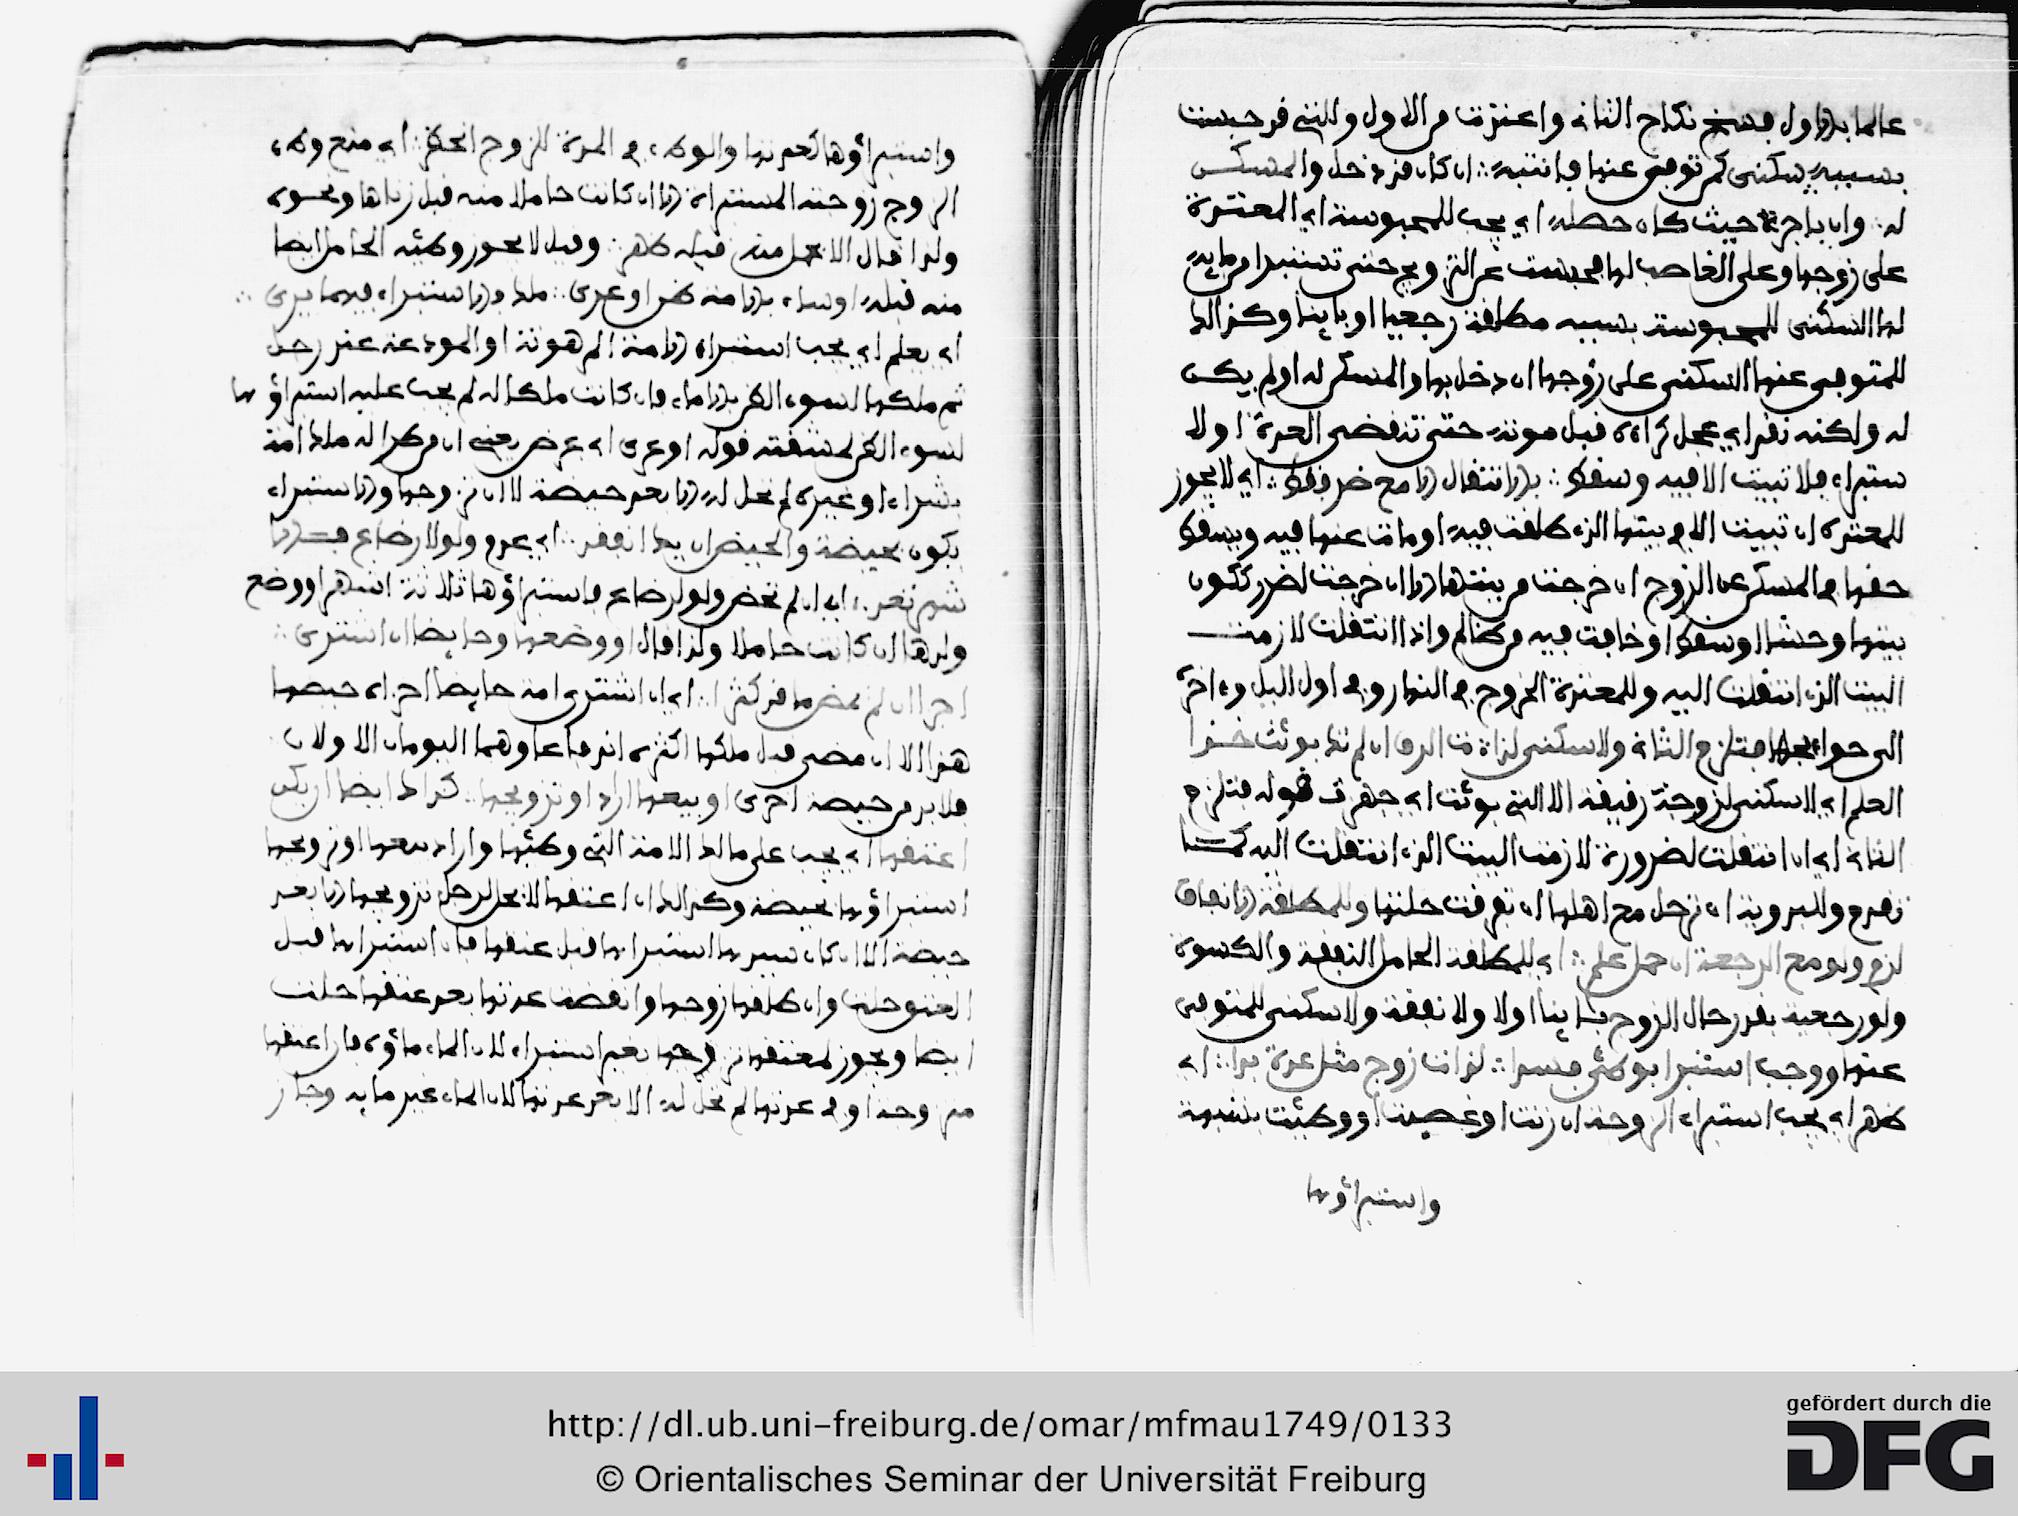 عالما بالاول فسخ نكاح الثاني واعتدت من الاول وللتي قد حبست
بسببه سكنى كمن توفى عنها فانتبه ان كان قد دخل والمسكن
له وان باجرة حيث كان حصله اي يجب للمحبوسة اي المعتدة
على زوجها وعلى الغاصب لها
لها السكنى للمحبوسة بسببه مطلقة رجعيا او باينا وكذالك
للمتوفى عنها السكنى على زوجها ان دخل بها والمسكن له اولم يكن
له ولكنه نقد اي عجل كراءه قبل موته حتى تنقضى العدة او الا
ستبراء فلا تبيت الا فيه وسقط بالانتقال لا مع ضر فقط اي لا يجوز
للمعتدة ان تبيت الا في بيتها الذي طلقت فيه او مات عنها فيه ويسقط
حقها في المسكن عن الزوج ان خرجت من بيتها الا ان خرجت لضرر ككون
بيتها وحشا او سقط او خافت فيه من ظالم واذا انتقلت لازمت
البيت الذي انتقلت اليه وللمعتدة الخروج في النهار وفي اول اليل وءاخره
الى حوائجها فتلزم الثاني ولا سكنى لذات الرق ان لم تك بوئت خذا
العلم اي لا سكنى لزوجة رقيقة الا التي بوئت اي جهزت قوله فتلزم
الثاني اي ان انتقلت لضرورة لازمت البيت الذي انتقلت اليه كما
تقدم وللبدوية ان ترحل مع اهلها ان تفرقت حلتها وللمطلقة الانفاق
لزم ولو مع الرجعة ان حمل علم اي للمطلقة الحامل النفقة والكسوة
ولو رجعية بقدر حال الزوج باينا اولا ولا نفقة ولا سكنى للمتوفى
عنها ووجب استبرا بوطئ فسرا لذات زوج مثل عدة برا اي
ظهر اي يجب استبراء الزوجة ان زنت او غصبت او وطئت بشبهة
واستبراؤها
واستبراؤها كعدتها والوطء في المدة للزوج انحظر اي منع وطء
الزوج زوجته المستبراة الا ان كانت حاملا منه قبل زناها ونحوه
ولذا قال الا بحمل منه قبله ظهر وقيل لا يجوز وطئه الحامل ايضا
منه قبله
اي يعلم اي يجب استبراء الامة المرهونة او المودعة عند رجل
ثم ملكها لسوء الظن بالاماء فان كانت ملكا له لم يجب عليه استبراؤها
لسوء الظن لمشقته قوله او عرى اي عرض يعنى ان من طرا له ملك امة
بشراء او غيره لم تحل له الا بعد حيضة لا ان تزوجها والاستبراء
يكون بحيضة والحيض ان يك انفقد اي عدم ولو لا رضاع
شهر تعد اي ان لم تحض ولو لرضاع فاستبراؤها ثلاثة اشهر او وضع
ولدها ان كانت حاملا ولذا قال او وضعها وحايضا ان اشترى
اجزا ان لم يمض ما قد كثرا اي ان اشترى امة حايضا اجزاه حيضها
هذا الا ان مضى قبل ملكها اكثره اندفاعا وهما اليومان الاولان
فلا بد من حيضة اخرى او بيعها اراد او تزويجها كذاك ايضا ان يكن
اعتقها اي يجب على مالك الامة التي وطئها واراد بيعها او تزويجها
استبراؤها بحيضة وكذالك ان اعتقها لا يحل لرجل تزويجها الا بعد
حيضة الا ان كان سيدها استبراها قبل عتقها فان استبراها قبل
العتق حلت وان طلقها زوجها وانقضت عدتها بعد عتقها حلت
ايضا ويجوز لمعتقها تزوجها بغير استبراء لان الماء ماؤه فان اعتقها
متزوجة او في عدتها لم تحل له الا بعد عدتها لان الماء غير مايه وجاز
http://dl.ub.uni-freiburg.de/omar/mfmau1749/0133
© Orientalisches Seminar der Universität Freiburg
gefördert durch die
DFG